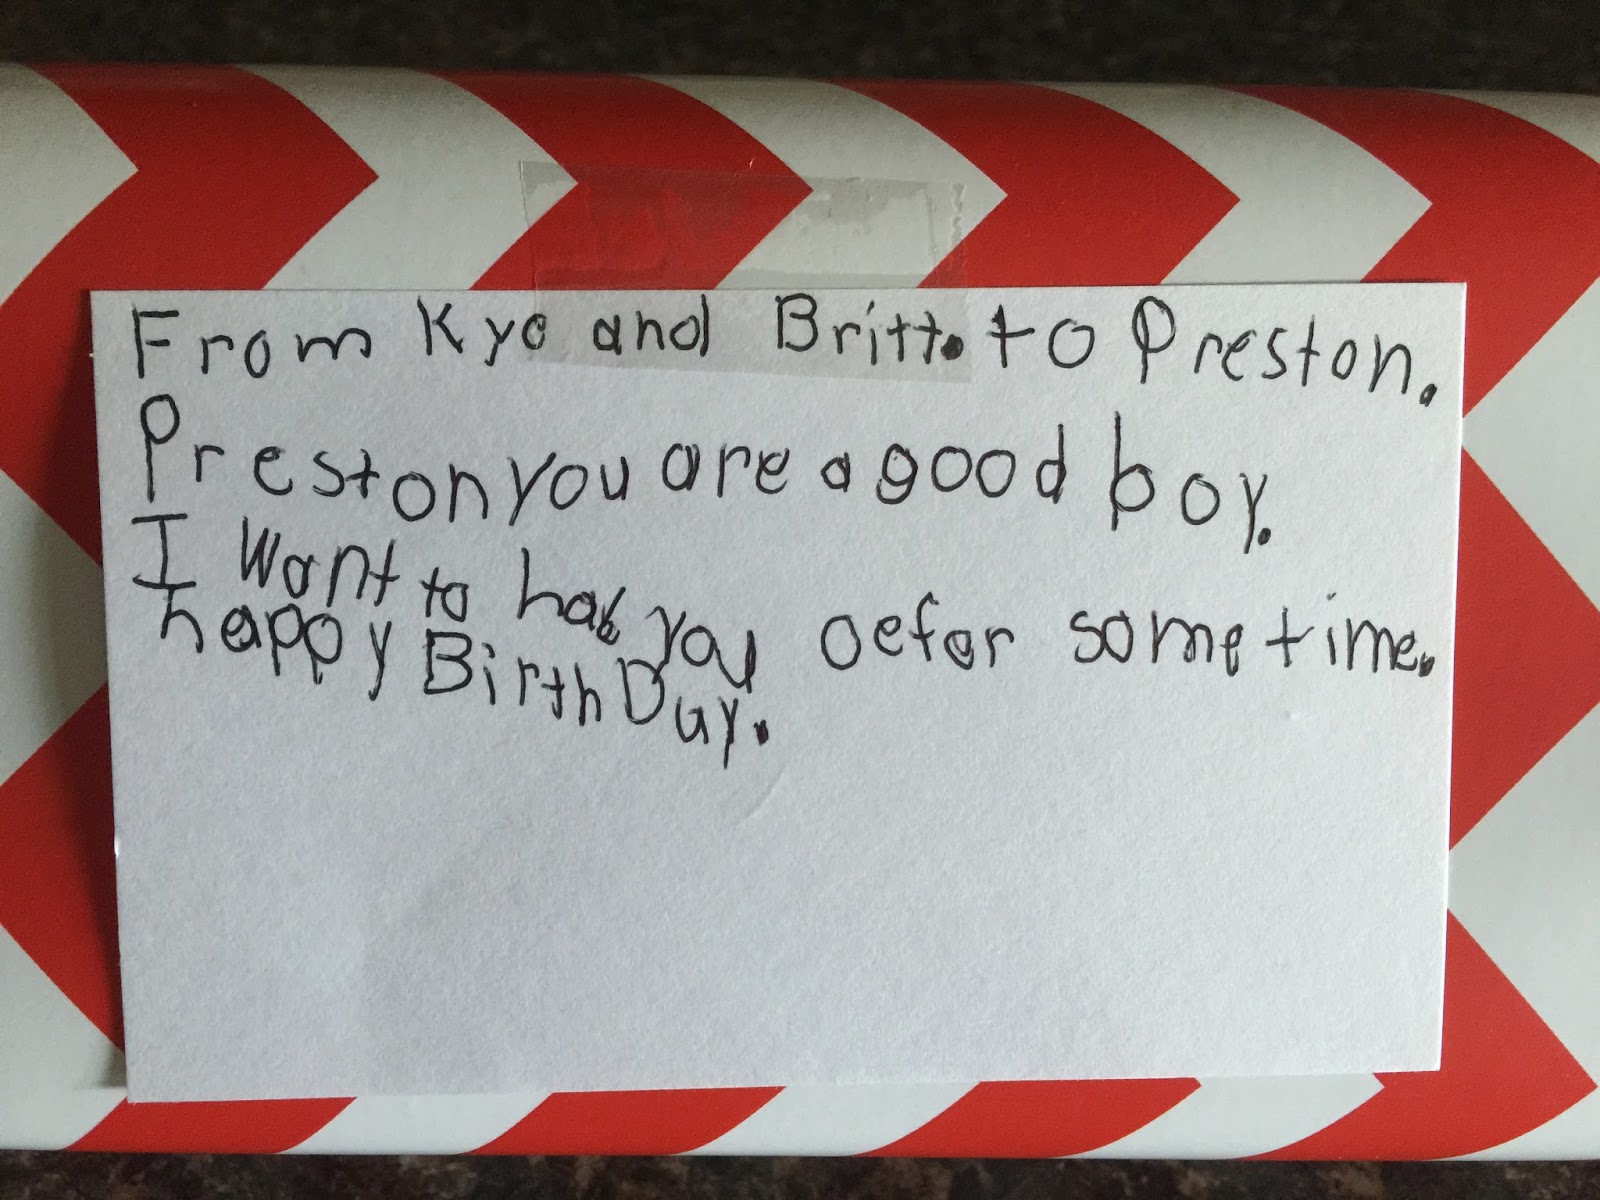 From Kye and Britt. to Preston.
Preston you are a good boy.
I want to hav you oefer some time.
happy BirthDay.